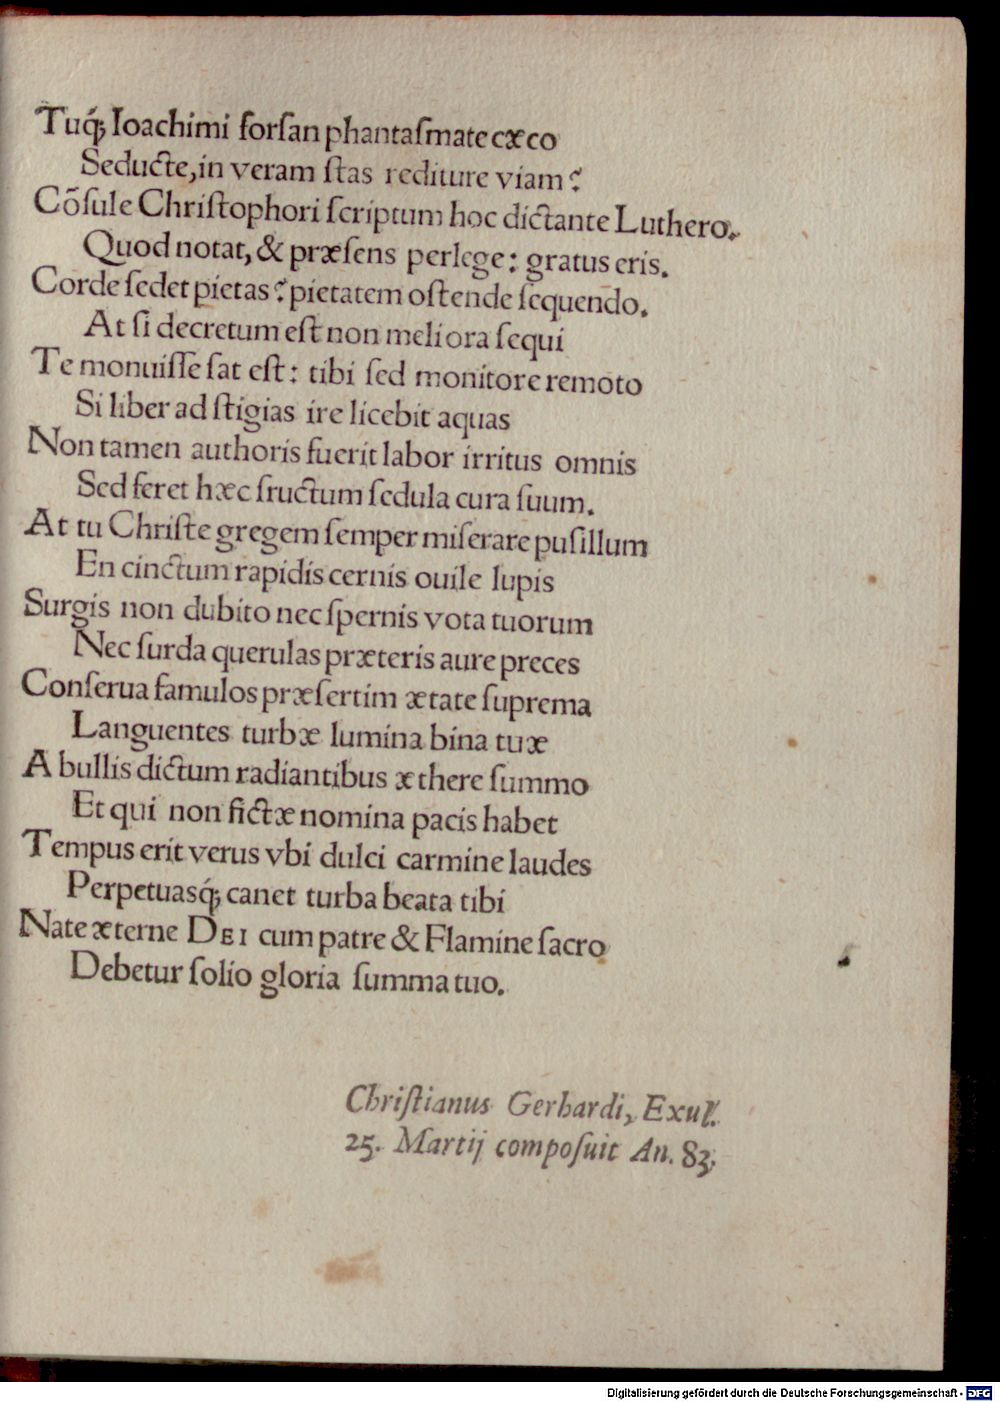 Tuq́; Ioachimi forſan phantaſmate cæco
Seducte, in veram ſtas rediture viam?
Cõſule Chriſtophori ſcriptum hoc dictante Luthero.
Quod notat, & præſens perlege: gratus eris.
Corde ſedet pietas? pietatem oſtende ſequendo.
At ſi decretum eſt non meliora ſequi
Te monuiſſe ſat eſt: tibi ſed monitore remoto
Si liber ad ſtigias ire licebit aquas
Non tamen authoris fuerit labor irritus omnis
Sed feret hæc fructum ſedula cura ſuum.
At tu Chriſte gregem ſemper miſerare puſillum
En cinctum rapidis cernis ouile lupis
Surgis non dubito nec ſpernis vota tuorum
Nec ſurda querulas præteris aure preces
Conſerua famulos præſertim ætate ſuprema
Languentes turbæ lumina bina tuæ
A bullis dictum radiantibus æthere ſummo
Et qui non fictæ nomina pacis habet
Tempus erit verus vbi dulci carmine laudes
Perpetuasq́; canet turba beata tibi
Nate æterne DEI cum patre & Flamine ſacro
Debetur ſolio gloria ſumma tuo.
Chriſtianus Gerhardi, Exul.
25. Martij compoſuit An. 83.
Digitalisierung gefördert durch die Deutsche Forschungsgemeinschaft - DFG